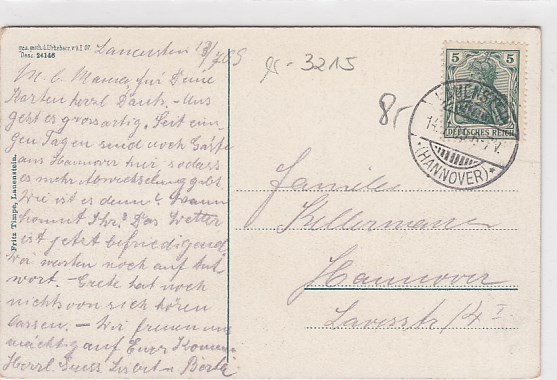 ges. gesch. d. Urheberr. v. 9.I.07
Desc. 24146
Lauenstein 13/7 09
M. l. Mama für Deine
Karten herzl. Dank. - Uns
geht es grossartig. Seit eini-
gen Tagen sind noch Gäste
aus Hannover hier, sodass
es mehr Abwechselung gibt.
Wie ist es denn? Wann
kommt Ihr? Das Wetter
ist jetzt befriedigend.
Wir warten noch auf Ant-
wort. - Grete hat noch
nichts von sich hören
lassen. - Wir freuen uns
mächtig auf Euer Kommen
Herzl. Gruss Lisbet u. Berta
Fritz Timpe, Lauenstein.
gr - 3215
8,-
5 5
DEUTSCHES REICH
LAUENSTEIN
*(HANNOVER)*
Familie
Kellermann
Hannover
Lavesstr 14 I